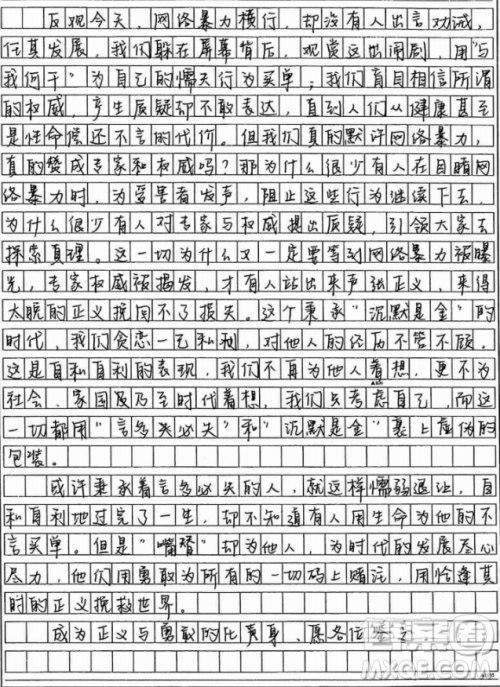 反观今天，网络暴力横行，却没有人出言劝诫，
任其发展，我们躲在屏幕背后，观赏这出闹剧，用“与
我何干”为自己的懦夫行为买单；我们盲目相信所谓
的权威，产生质疑却不敢表达，直到人们从健康甚至
是性命偿还不言的代价。但我们真的默许网络暴力，
真的赞成专家和权威吗？那为什么很少有人在目睹网
络暴力时，为受害者发声，阻止这些行为继续下去，
为什么很少有人对专家与权威提出质疑，引领大家去
探索真理。这一切为什么又一定要等到网络暴力被曝
光，专家权威被揭发，才有人站出来声张正义，来得
太晚的正义挽回不了损失。这个秉承“沉默是金”的
时代，我们贪恋一己私利，对他人的经历不管不顾。
这是自私自利的表现，我们不再为他人着想，更不为
社会、家国及乃至时代着想，我们只考虑自己，而这
一切都用“言多失必失”和“沉默是金”裹上虚伪的
包装。
或许秉承着言多必失的人，就这样懦弱退让，自
私自利地过完了一生，却不知道有人用生命为他的不
言买单。但是“嘴替”却为他人，为时代的发展尽心
尽力，他们用勇敢为所有的一切码上赌注，用恰逢其
时的正义挽救世界。
成为正义与勇敢的化身，愿各位